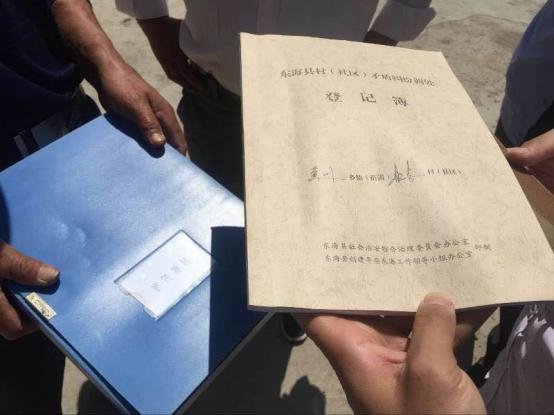 东海县村（社区）矛盾纠纷调处
登记簿
乡镇（街道） 村（社区）
东海县社会治安综合治理委员会办公室
东海县创建平安东海工作领导小组办公室 印制